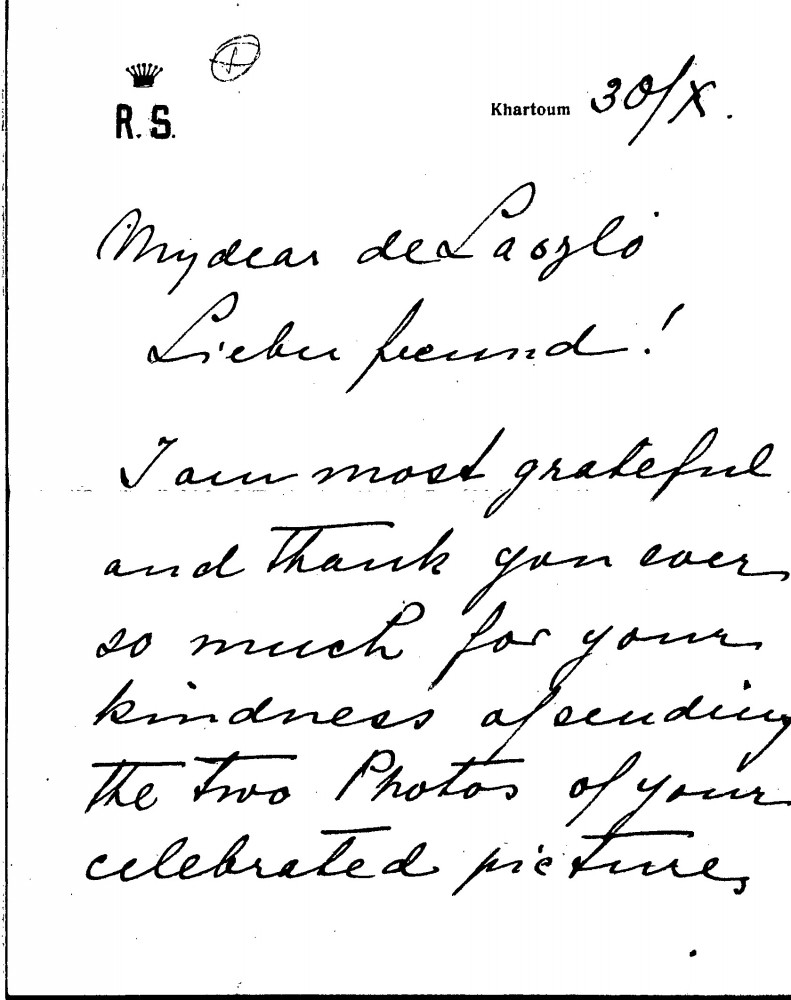 R. S.
Khartoum 30/X.
My dear de László
Lieber freund!
I am most grateful
and thank you ever
so much for your
kindness of sending
the two Photos of your
celebrated picture,